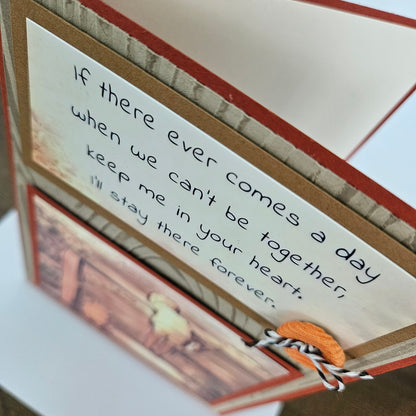 If there ever comes a day
when we can't be together,
keep me in your heart.
I'll stay there forever.